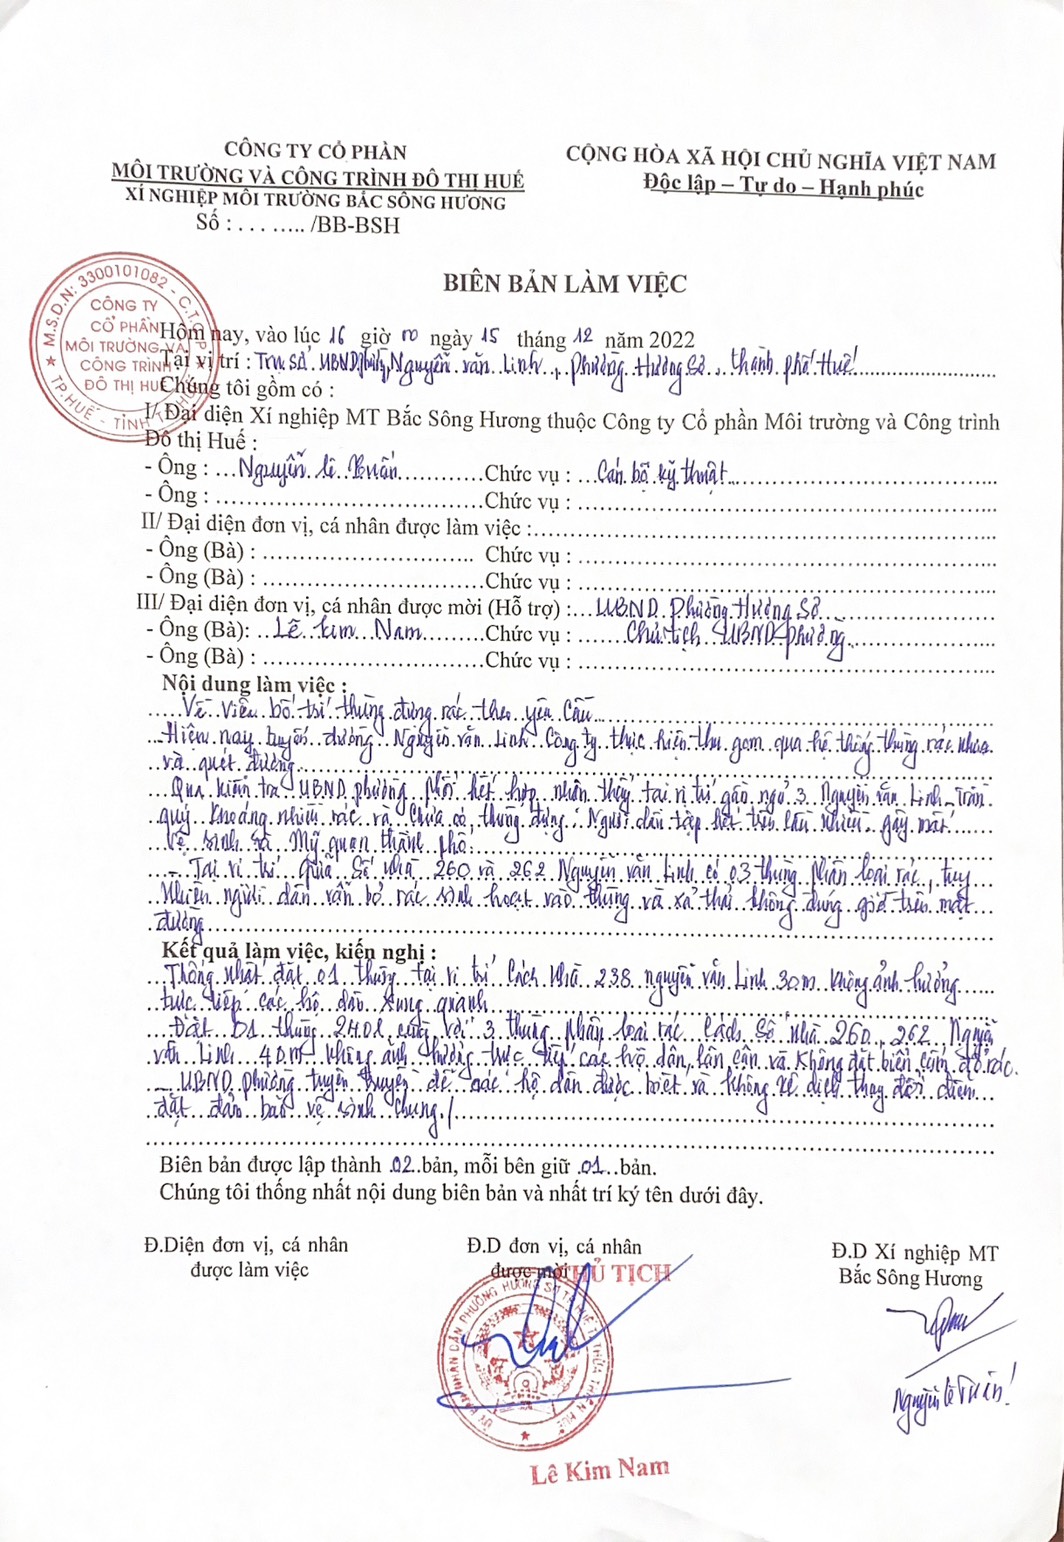 CÔNG TY CỔ PHẦN
MÔI TRƯỜNG VÀ CÔNG TRÌNH ĐÔ THỊ HUẾ
XÍ NGHIỆP MÔI TRƯỜNG BẮC SÔNG HƯƠNG
Số : . . . ….. /BB-BSH
CỘNG HÒA XÃ HỘI CHỦ NGHĨA VIỆT NAM
Độc lập – Tự do – Hạnh phúc
BIÊN BẢN LÀM VIỆC
M.S.D.N: 3300101082 - C.T.C.P
CÔNG TY
CỔ PHẦN
MÔI TRƯỜNG VÀ
CÔNG TRÌNH
ĐÔ THỊ HUẾ
TP.HUẾ - TỈNH
Hôm nay, vào lúc 16 giờ 00 ngày 15 tháng 12 năm 2022
Tại vị trí : Trụ sở UBND phường, Nguyễn văn Linh, phường Hương Sơ, thành phố Huế
Chúng tôi gồm có :
I/ Đại diện Xí nghiệp MT Bắc Sông Hương thuộc Công ty Cổ phần Môi trường và Công trình
Đô thị Huế :
- Ông : Nguyễn lê Tuấn Chức vụ : Cán bộ kỹ thuật
- Ông : Chức vụ :
II/ Đại diện đơn vị, cá nhân được làm việc :
- Ông (Bà) : Chức vụ :
- Ông (Bà) : Chức vụ :
III/ Đại diện đơn vị, cá nhân được mời (Hỗ trợ) : UBND phường Hương Sơ
- Ông (Bà): Lê Kim Nam Chức vụ : Chủ tịch UBND phường
- Ông (Bà) : Chức vụ :
Nội dung làm việc :
Về việc bố trí thùng đựng rác theo yêu cầu
Hiện nay tuyến đường Nguyễn văn Linh Công ty thực hiện thu gom qua hệ thống thùng rác nhựa
và quét đường
Qua kiểm tra UBND phường phối kết hợp nhận thấy tại vị trí gần ngã 3 Nguyễn văn Linh - Trần
quý Khoáng nhiều rác và chưa có thùng đựng. Người dân tập kết rác lâu nhiều gây mất
vệ sinh và Mỹ quan thành phố.
- Tại vị trí giữa Số nhà 260 và 262 Nguyễn văn Linh có 03 thùng phân loại rác, tuy
nhiên người dân vẫn bỏ rác sinh hoạt vào thùng và xả thải không đúng giờ trên mặt
đường
Kết quả làm việc, kiến nghị :
Thống nhất đặt 01 thùng tại vị trí cách nhà 238 nguyễn văn Linh 30m không ảnh hưởng
trực tiếp các hộ dân xung quanh
Đặt 01 thùng 240L cùng với 3 thùng phân loại rác cách số nhà 260, 262 Nguyễn
văn Linh 40m không ảnh hưởng trực tiếp các hộ dân lân cận và không đặt biển cấm đổ rác.
- UBND phường tuyên truyền để các hộ dân được biết và không xê dịch thay đổi điểm
đặt đảm bảo vệ sinh chung./
Biên bản được lập thành 02 bản, mỗi bên giữ 01 bản.
Chúng tôi thống nhất nội dung biên bản và nhất trí ký tên dưới đây.
Đ.Diện đơn vị, cá nhân
được làm việc
Đ.D đơn vị, cá nhân
được mời
CHỦ TỊCH
ỦY BAN NHÂN DÂN PHƯỜNG HƯƠNG SƠ TP HUẾ T. THỪA THIÊN HUẾ
Lê Kim Nam
Đ.D Xí nghiệp MT
Bắc Sông Hương
Nguyễn lê Tuấn